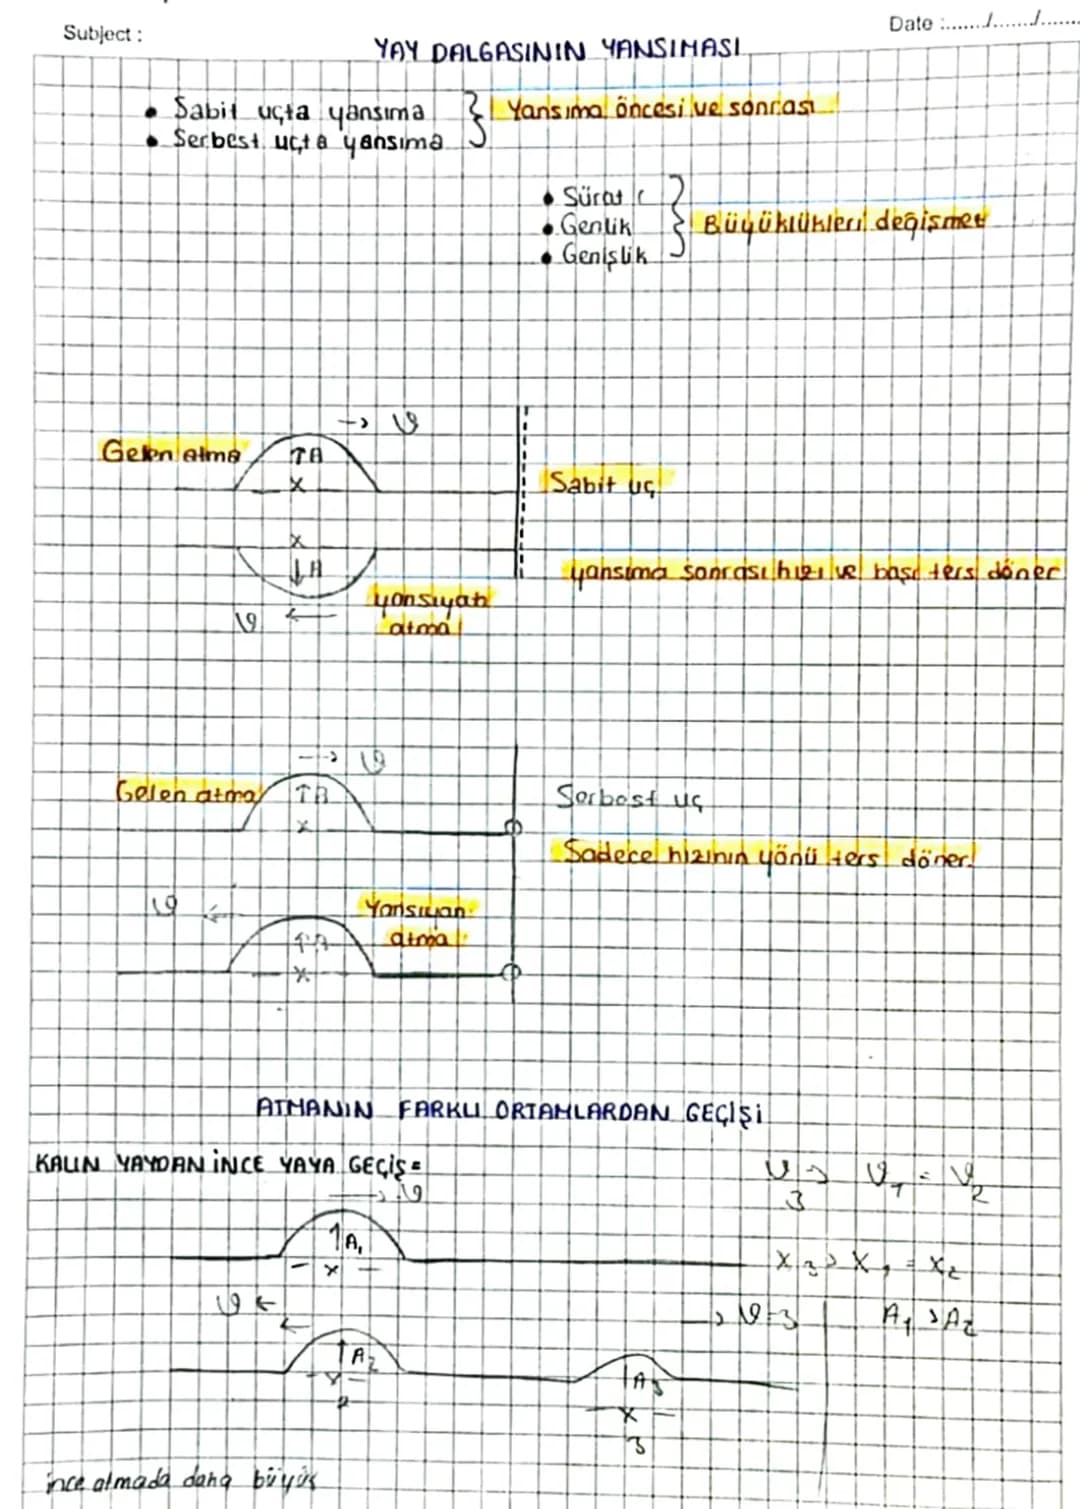 Subject :
Date :......./......./.......
YAY DALGASININ YANSIMASI
• Sabit uçta yansıma
• Serbest uçta yansıma
Yansıma öncesi ve sonrası
• Sürat
• Genlik
• Genişlik
Büyüklükleri değişmez
→ ϑ
Gelen atma
↑A
x
Sabit uç
x
↓A
yansıma sonrası hızı ve başı ters döner
yansıyan
atma
ϑ ←
→ ϑ
Gelen atma
↑A
x
Serbest uç
Sadece hızının yönü ters döner.
ϑ ←
Yansıyan
atma
↑A
x
ATMANIN FARKLI ORTAMLARDAN GEÇİŞİ
KALIN YAYDAN İNCE YAYA GEÇİŞ =
→ ϑ
ϑ3 > ϑ1 = ϑ2
↑A1
x
x3 > x1 = x2
ϑ ←
→ ϑ3
A1 > A2
↑A2
x2
↑A3
x
3
ince atmada daha büyük